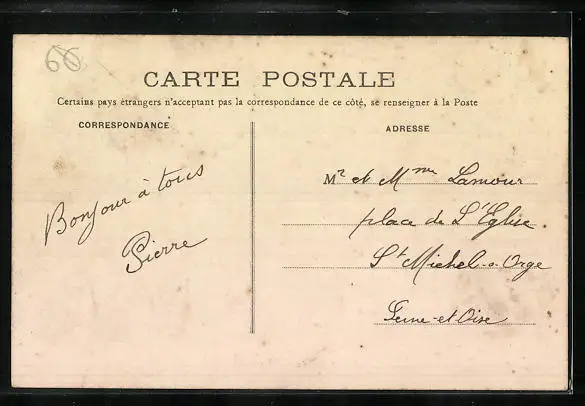 60
CARTE POSTALE
Certains pays étrangers n'acceptant pas la correspondance de ce côté, se renseigner à la Poste
CORRESPONDANCE
Bonjour à tous
Pierre
ADRESSE
Mr et Mme Lamour
place de L'Eglise
St Michel-s-Orge
Seine-et-Oise